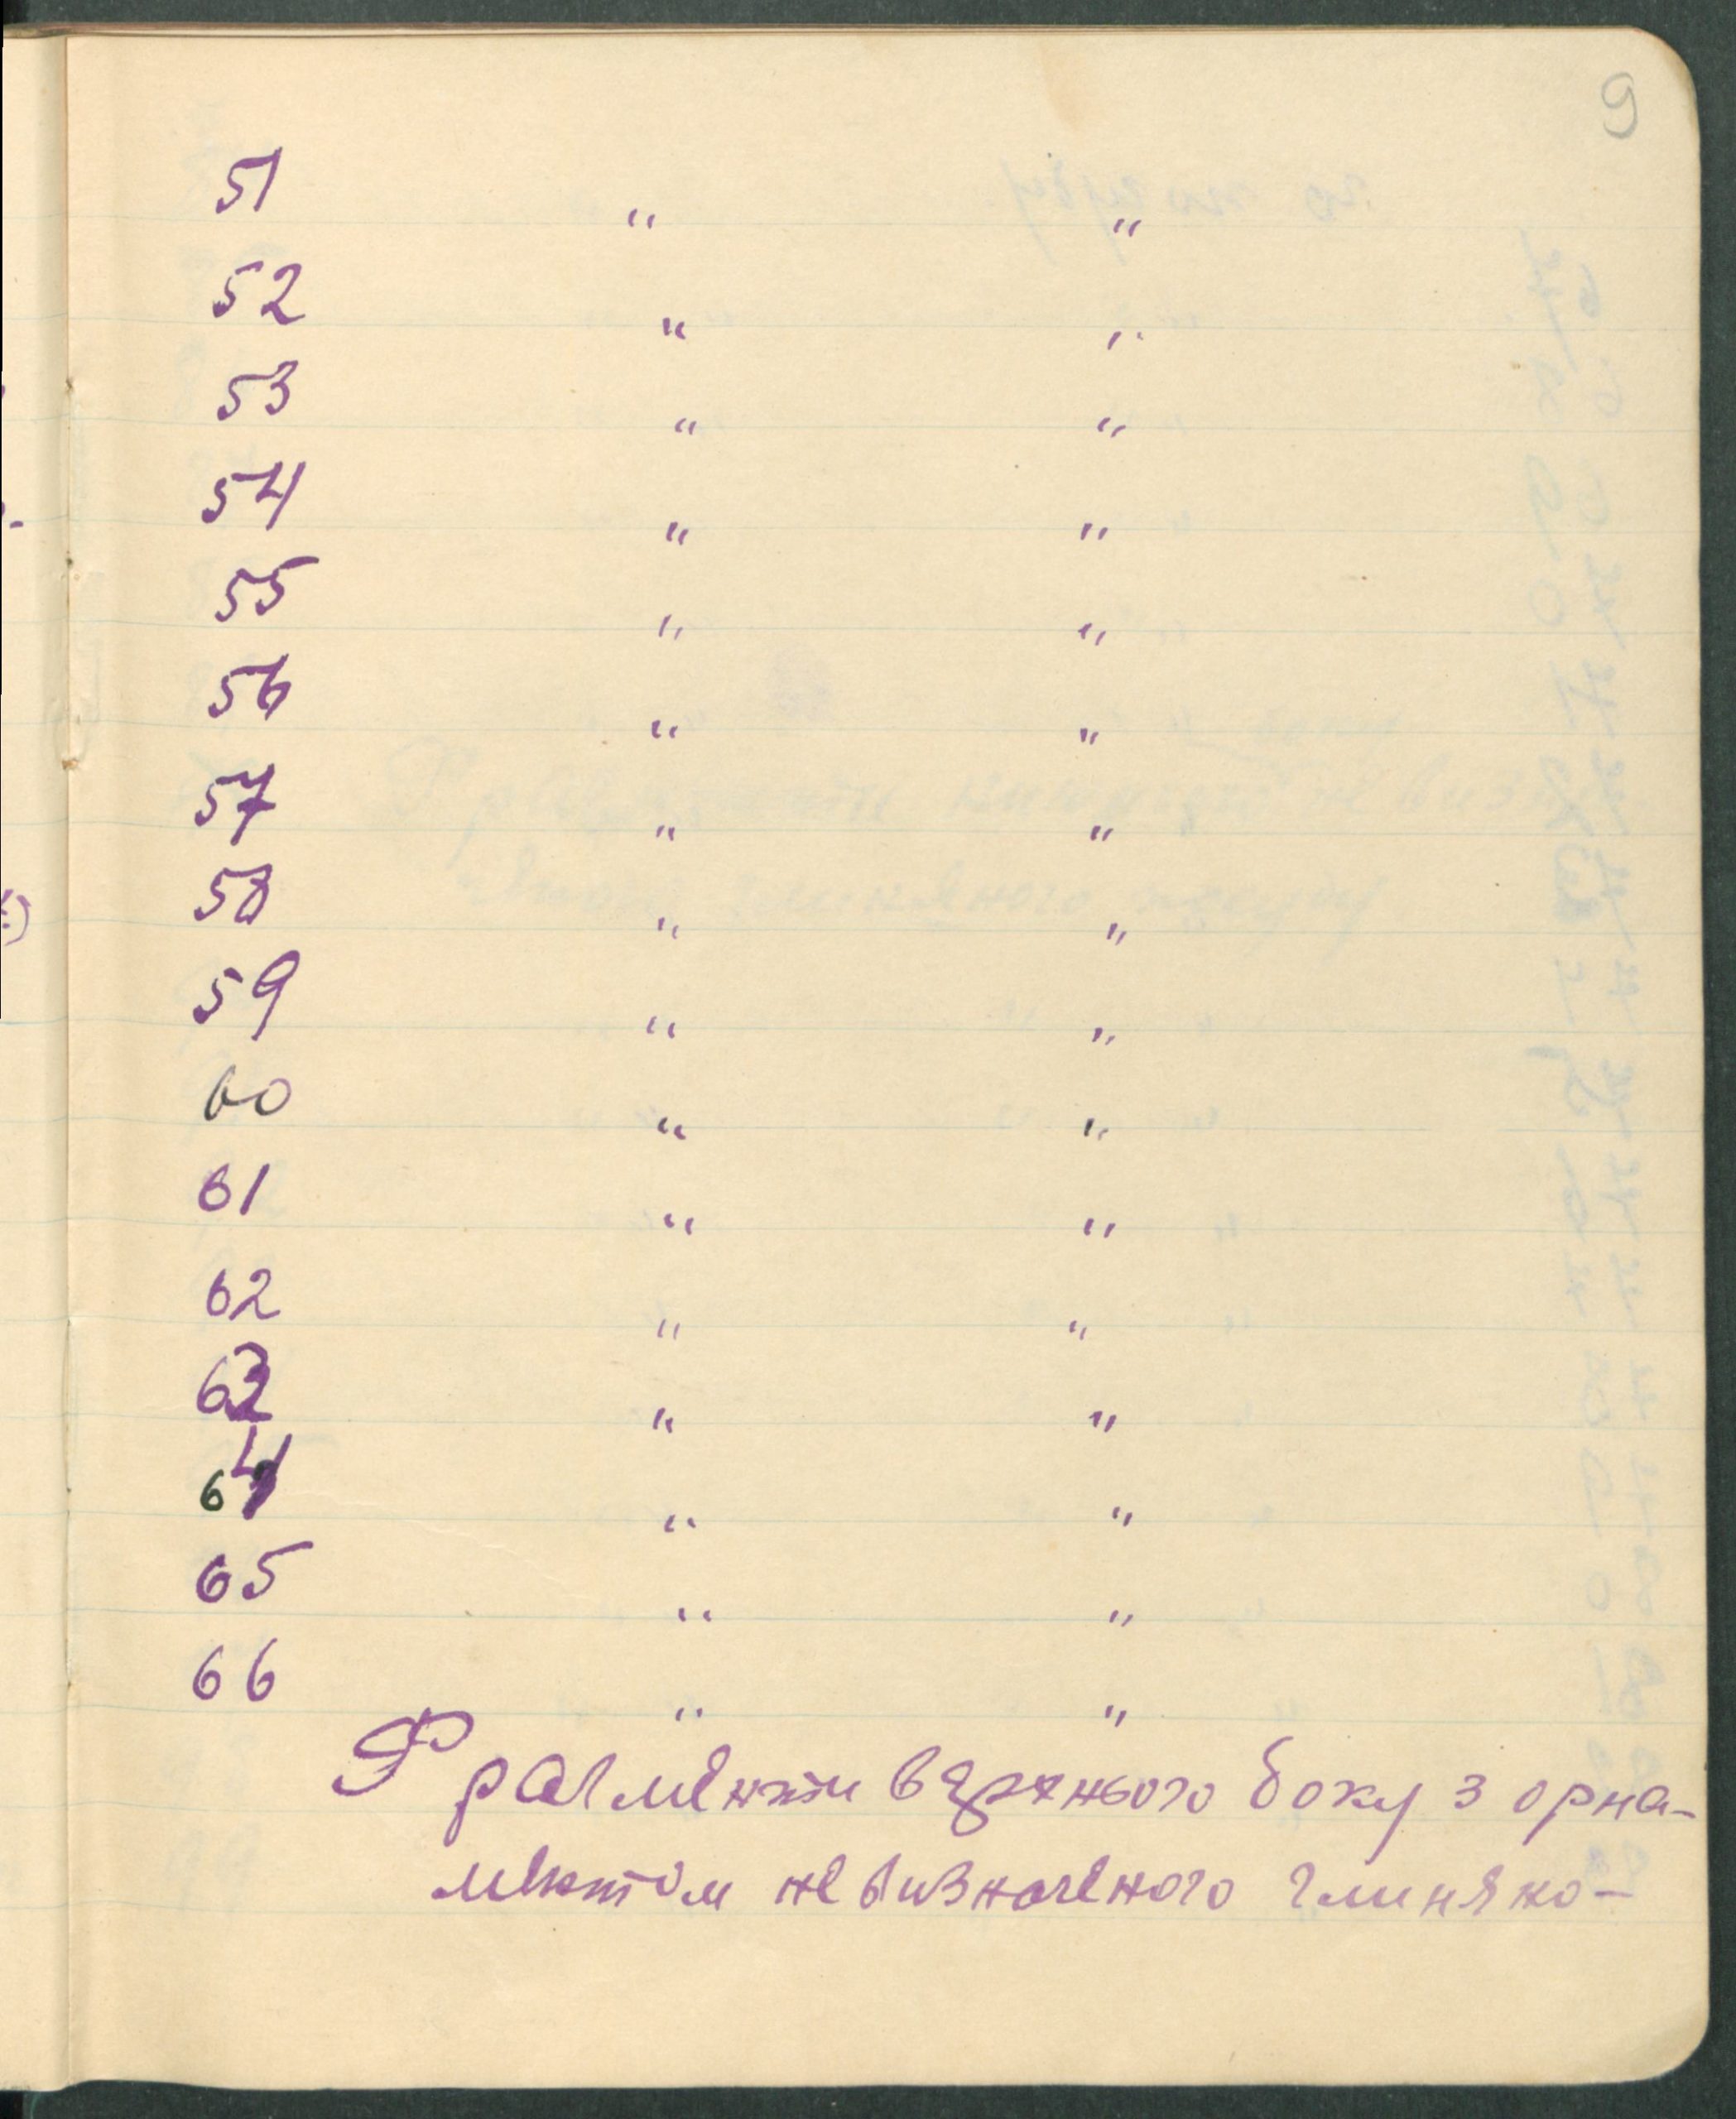 51 " "
52 " "
53 " "
54 " "
55 " "
56 " "
57 " "
58 " "
59 " "
60 " "
61 " "
62 " "
63 " "
64 " "
65 " "
66 " "
Фрагменти верхнього боку з орна-
ментом невизначеного глиняно-